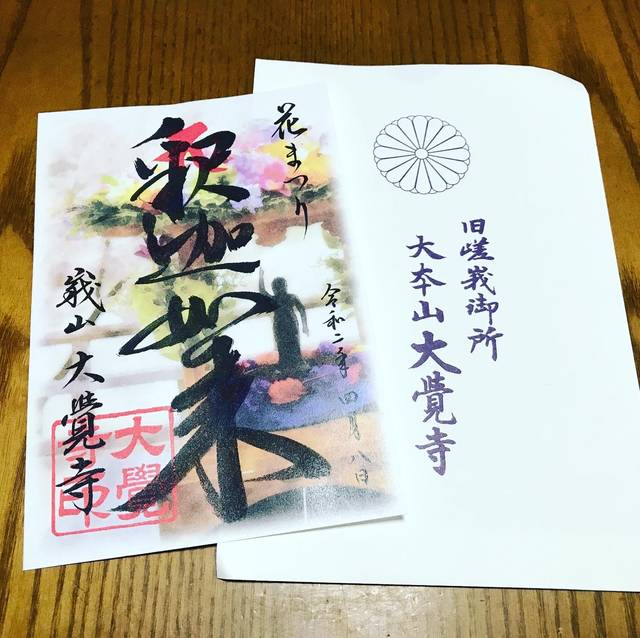 花まつり
釈迦如来
令和二年四月八日
嵯山大覺寺
大覺
寺印
旧嵯峨御所
大本山大覺寺